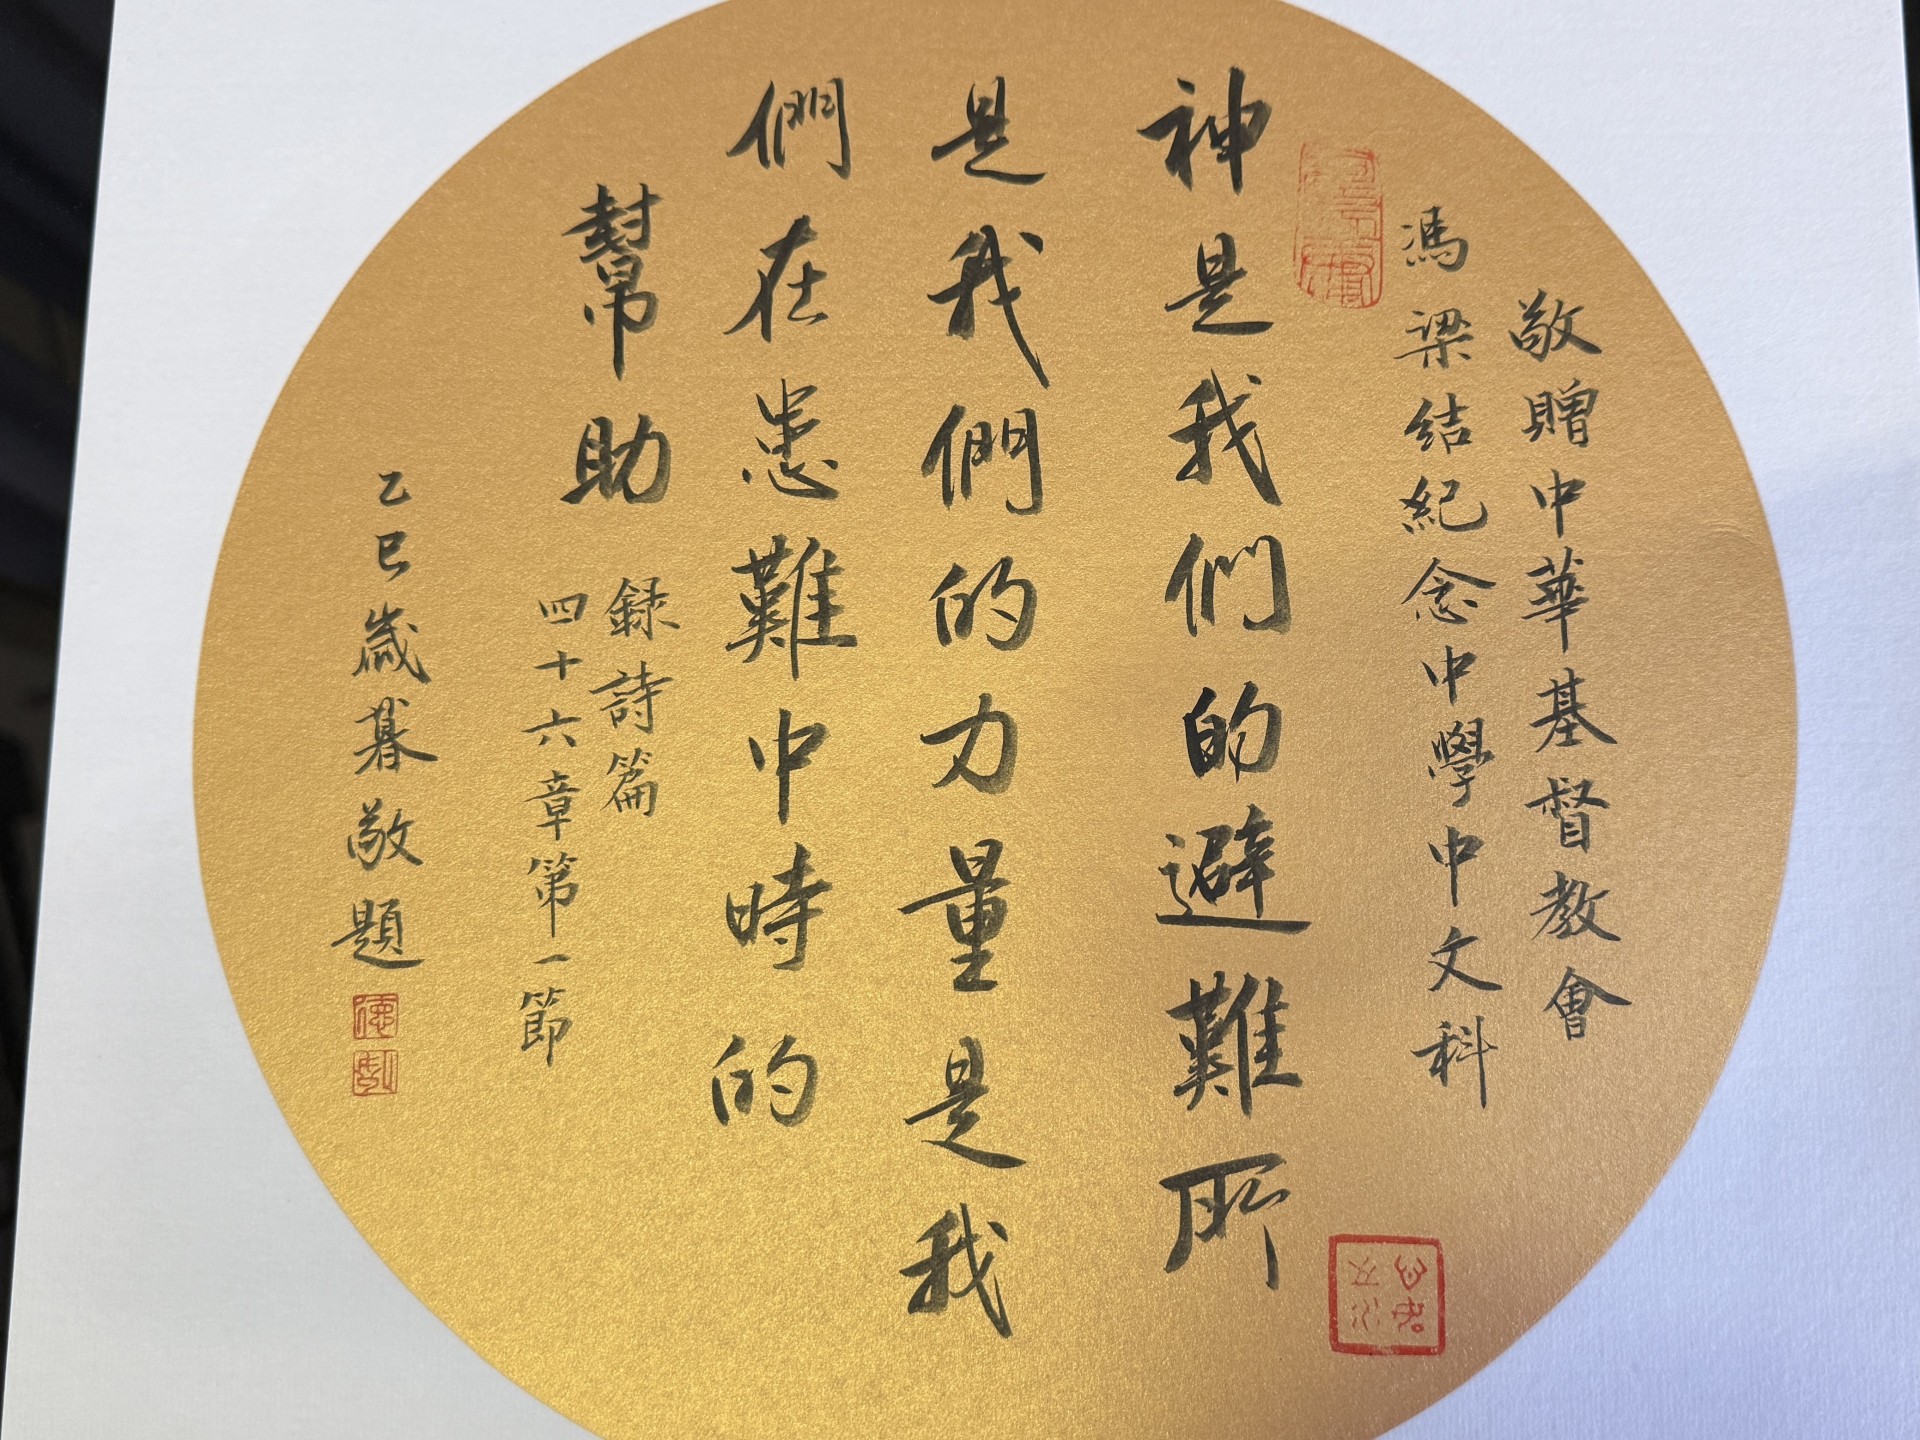 敬贈中華基督教會
馮梁結紀念中學中文科
神是我们的避難所
是我們的力量是我
們在患難中時的
幫助
録詩篇
四十六章第一節
乙巳歲暮敬題